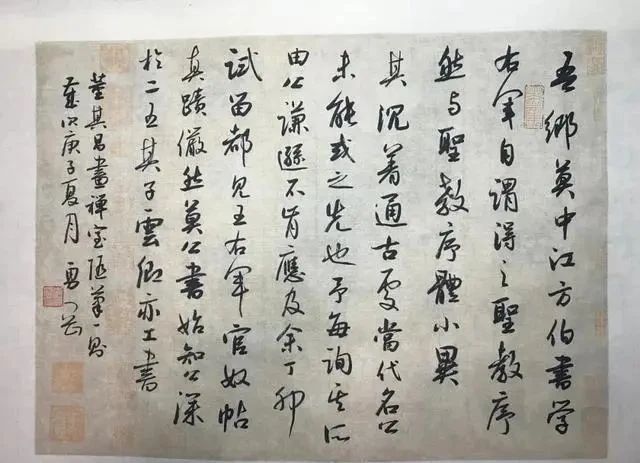 吾鄉莫中江方伯書学
右军自謂得之聖教序
然与聖教序體小異
其沉着通古處當代名公
未能或之先也予每詢其所
由公謙遜不肯應及余丁卯
試留都見王右軍官奴帖
真蹟儼然莫公書始知公深
於二王其子雲卿亦工書
董其昌畫禪室隨筆一則
歲次庚子夏月